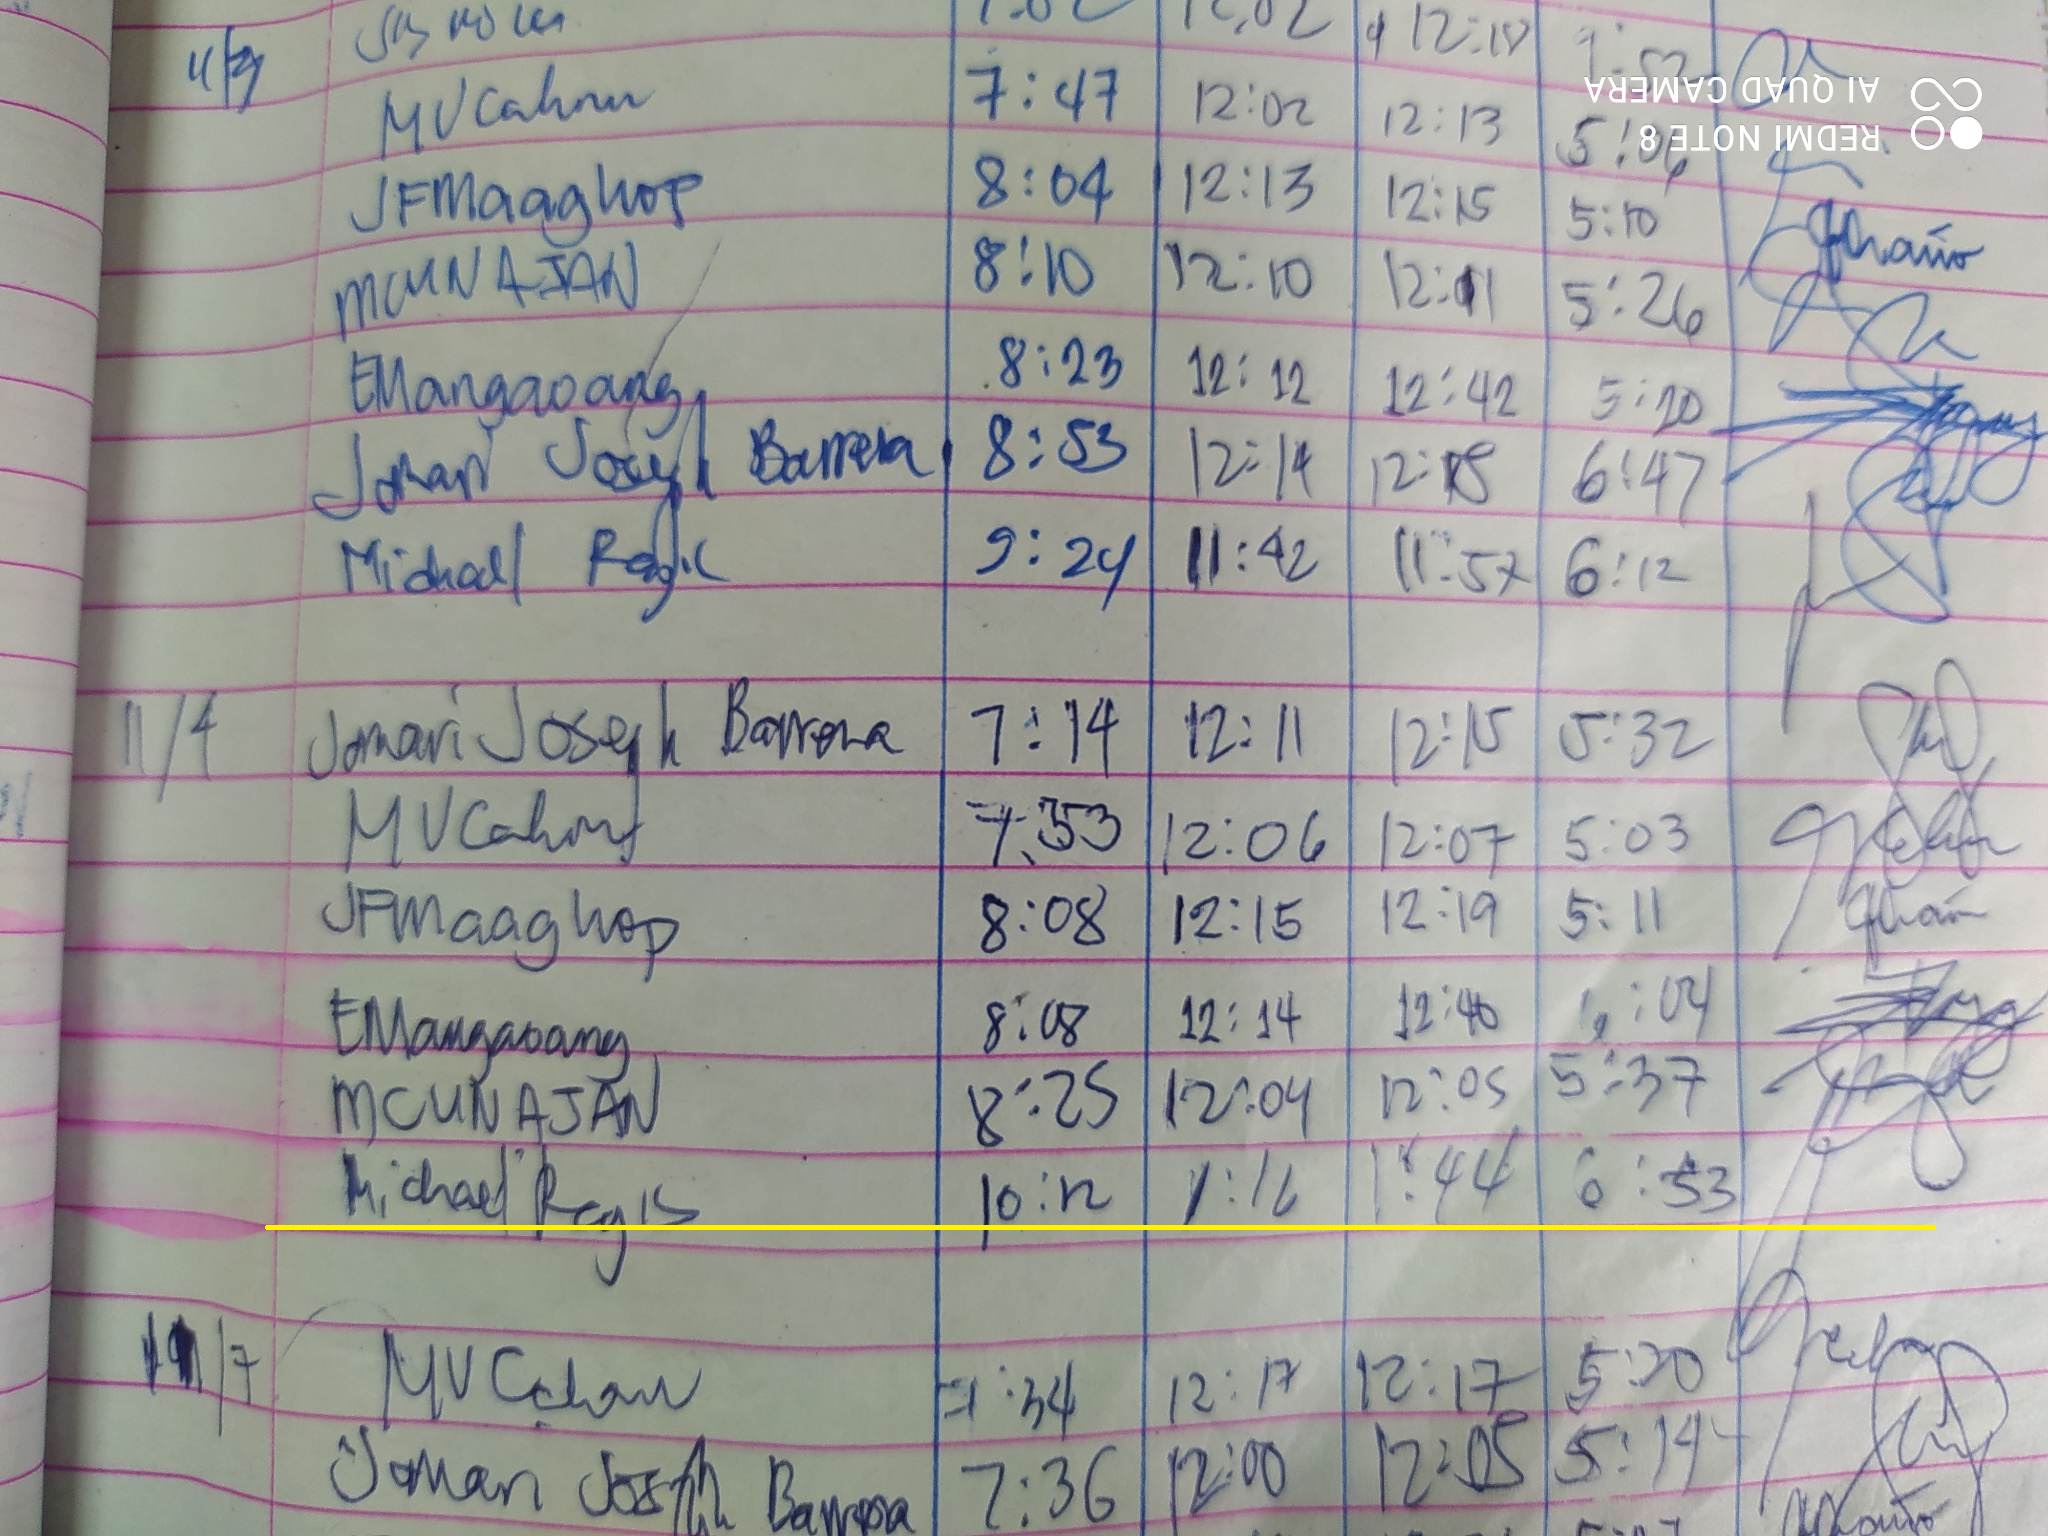 12:02 12:18
MVCahun 7:47 12:02 12:13 5:06
JFMaaghop 8:04 12:13 12:15 5:10
MCUNAJAN 8:10 12:10 12:11 5:26
EMangaoang 8:23 12:12 12:42 5:20
Jomari Joseph Barrera 8:53 12:14 12:15 6:47
Michael Regis 9:24 11:42 11:57 6:12
11/4 Jomari Joseph Barrera 7:14 12:11 12:15 5:32
7:53 12:06 12:07 5:03
JFMaaghop 8:08 12:15 12:19 5:11
EMangaoang 8:08 12:14 12:40 6:04
MCUNAJAN 8:25 12:04 12:05 5:37
Michael Regis 10:12 1:16 1:44 6:53
11/7 7:34 12:17 12:17 5:20
Jomari Joseph Barrera 7:36 12:00 12:05 5:14
REDMI NOTE 8
AI QUAD CAMERA